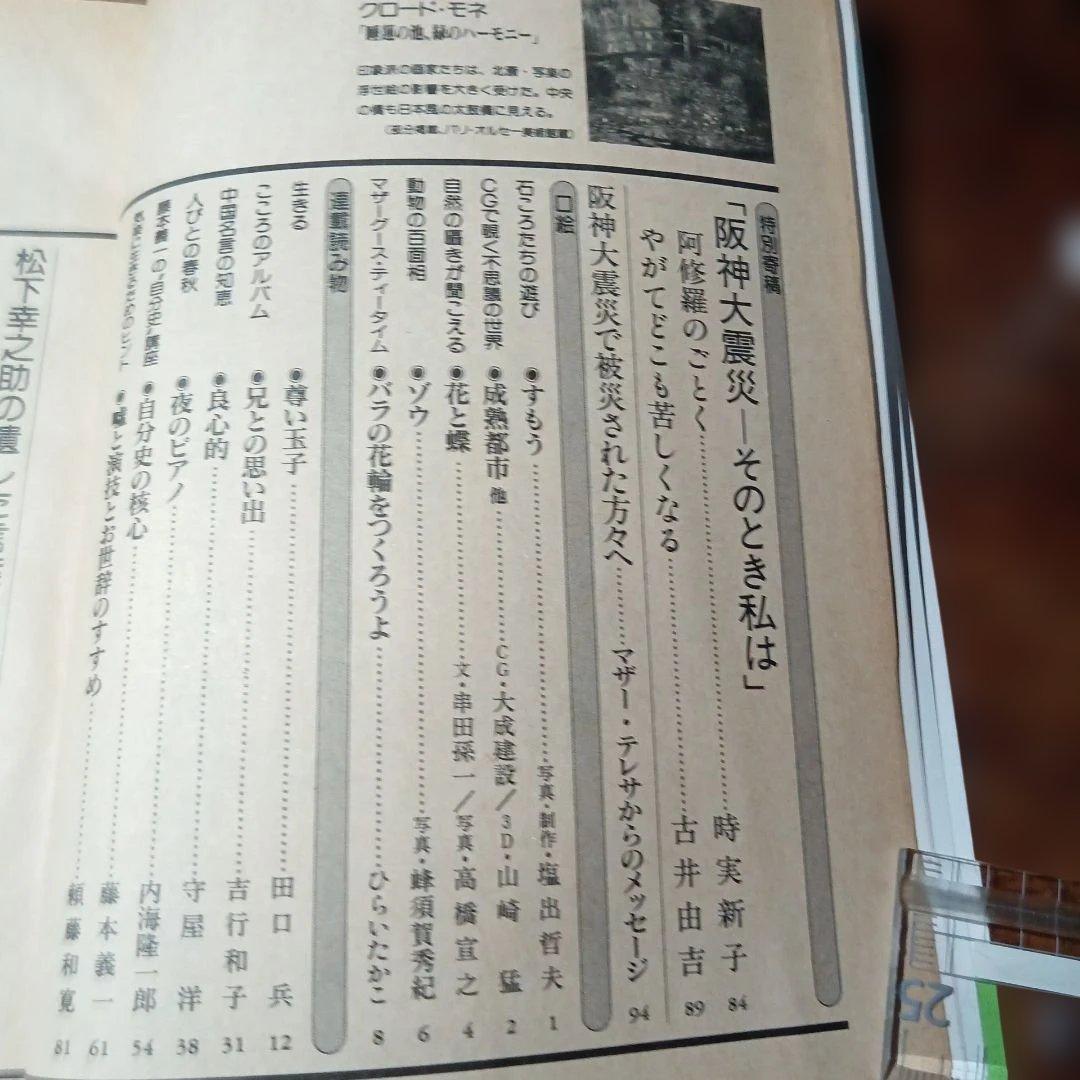 クロード・モネ
「睡蓮の池、緑のハーモニー」
印象派の画家たちは、北斎・写楽の
浮世絵の影響を大きく受けた。中央
の橋も日本風の太鼓橋に見える。
(部分掲載、パリ・オルセー美術館蔵)
特別寄稿
「阪神大震災―そのとき私は」
阿修羅のごとく 時実新子 84
やがてどこも苦しくなる 古井由吉 89
阪神大震災で被災された方々へ マザー・テレサからのメッセージ 94
口絵
石ころたちの遊び ●すもう 写真・制作・塩出哲夫 1
CGで覗く不思議の世界 ●成熟都市 他 CG・大成建設/3D・山崎 猛 2
自然の囁きが聞こえる ●花と蝶 文・串田孫一/写真・高橋宣之 4
動物の百面相 ●ゾウ 写真・蜂須賀秀紀 6
マザーグース・ティータイム ●バラの花輪をつくろうよ ひらいたかこ 8
連載読み物
生きる ●尊い玉子 田口 兵 12
こころのアルバム ●兄との思い出 吉行和子 31
中国名言の知恵 ●良心的 守屋 洋 38
人びとの春秋 ●夜のピアノ 内海隆一郎 54
藤本義一の"自分史"講座 ●自分史の核心 藤本義一 61
●嘘と演技とお世辞のすすめ 頼藤和寛 81
松下幸之助の遺
25